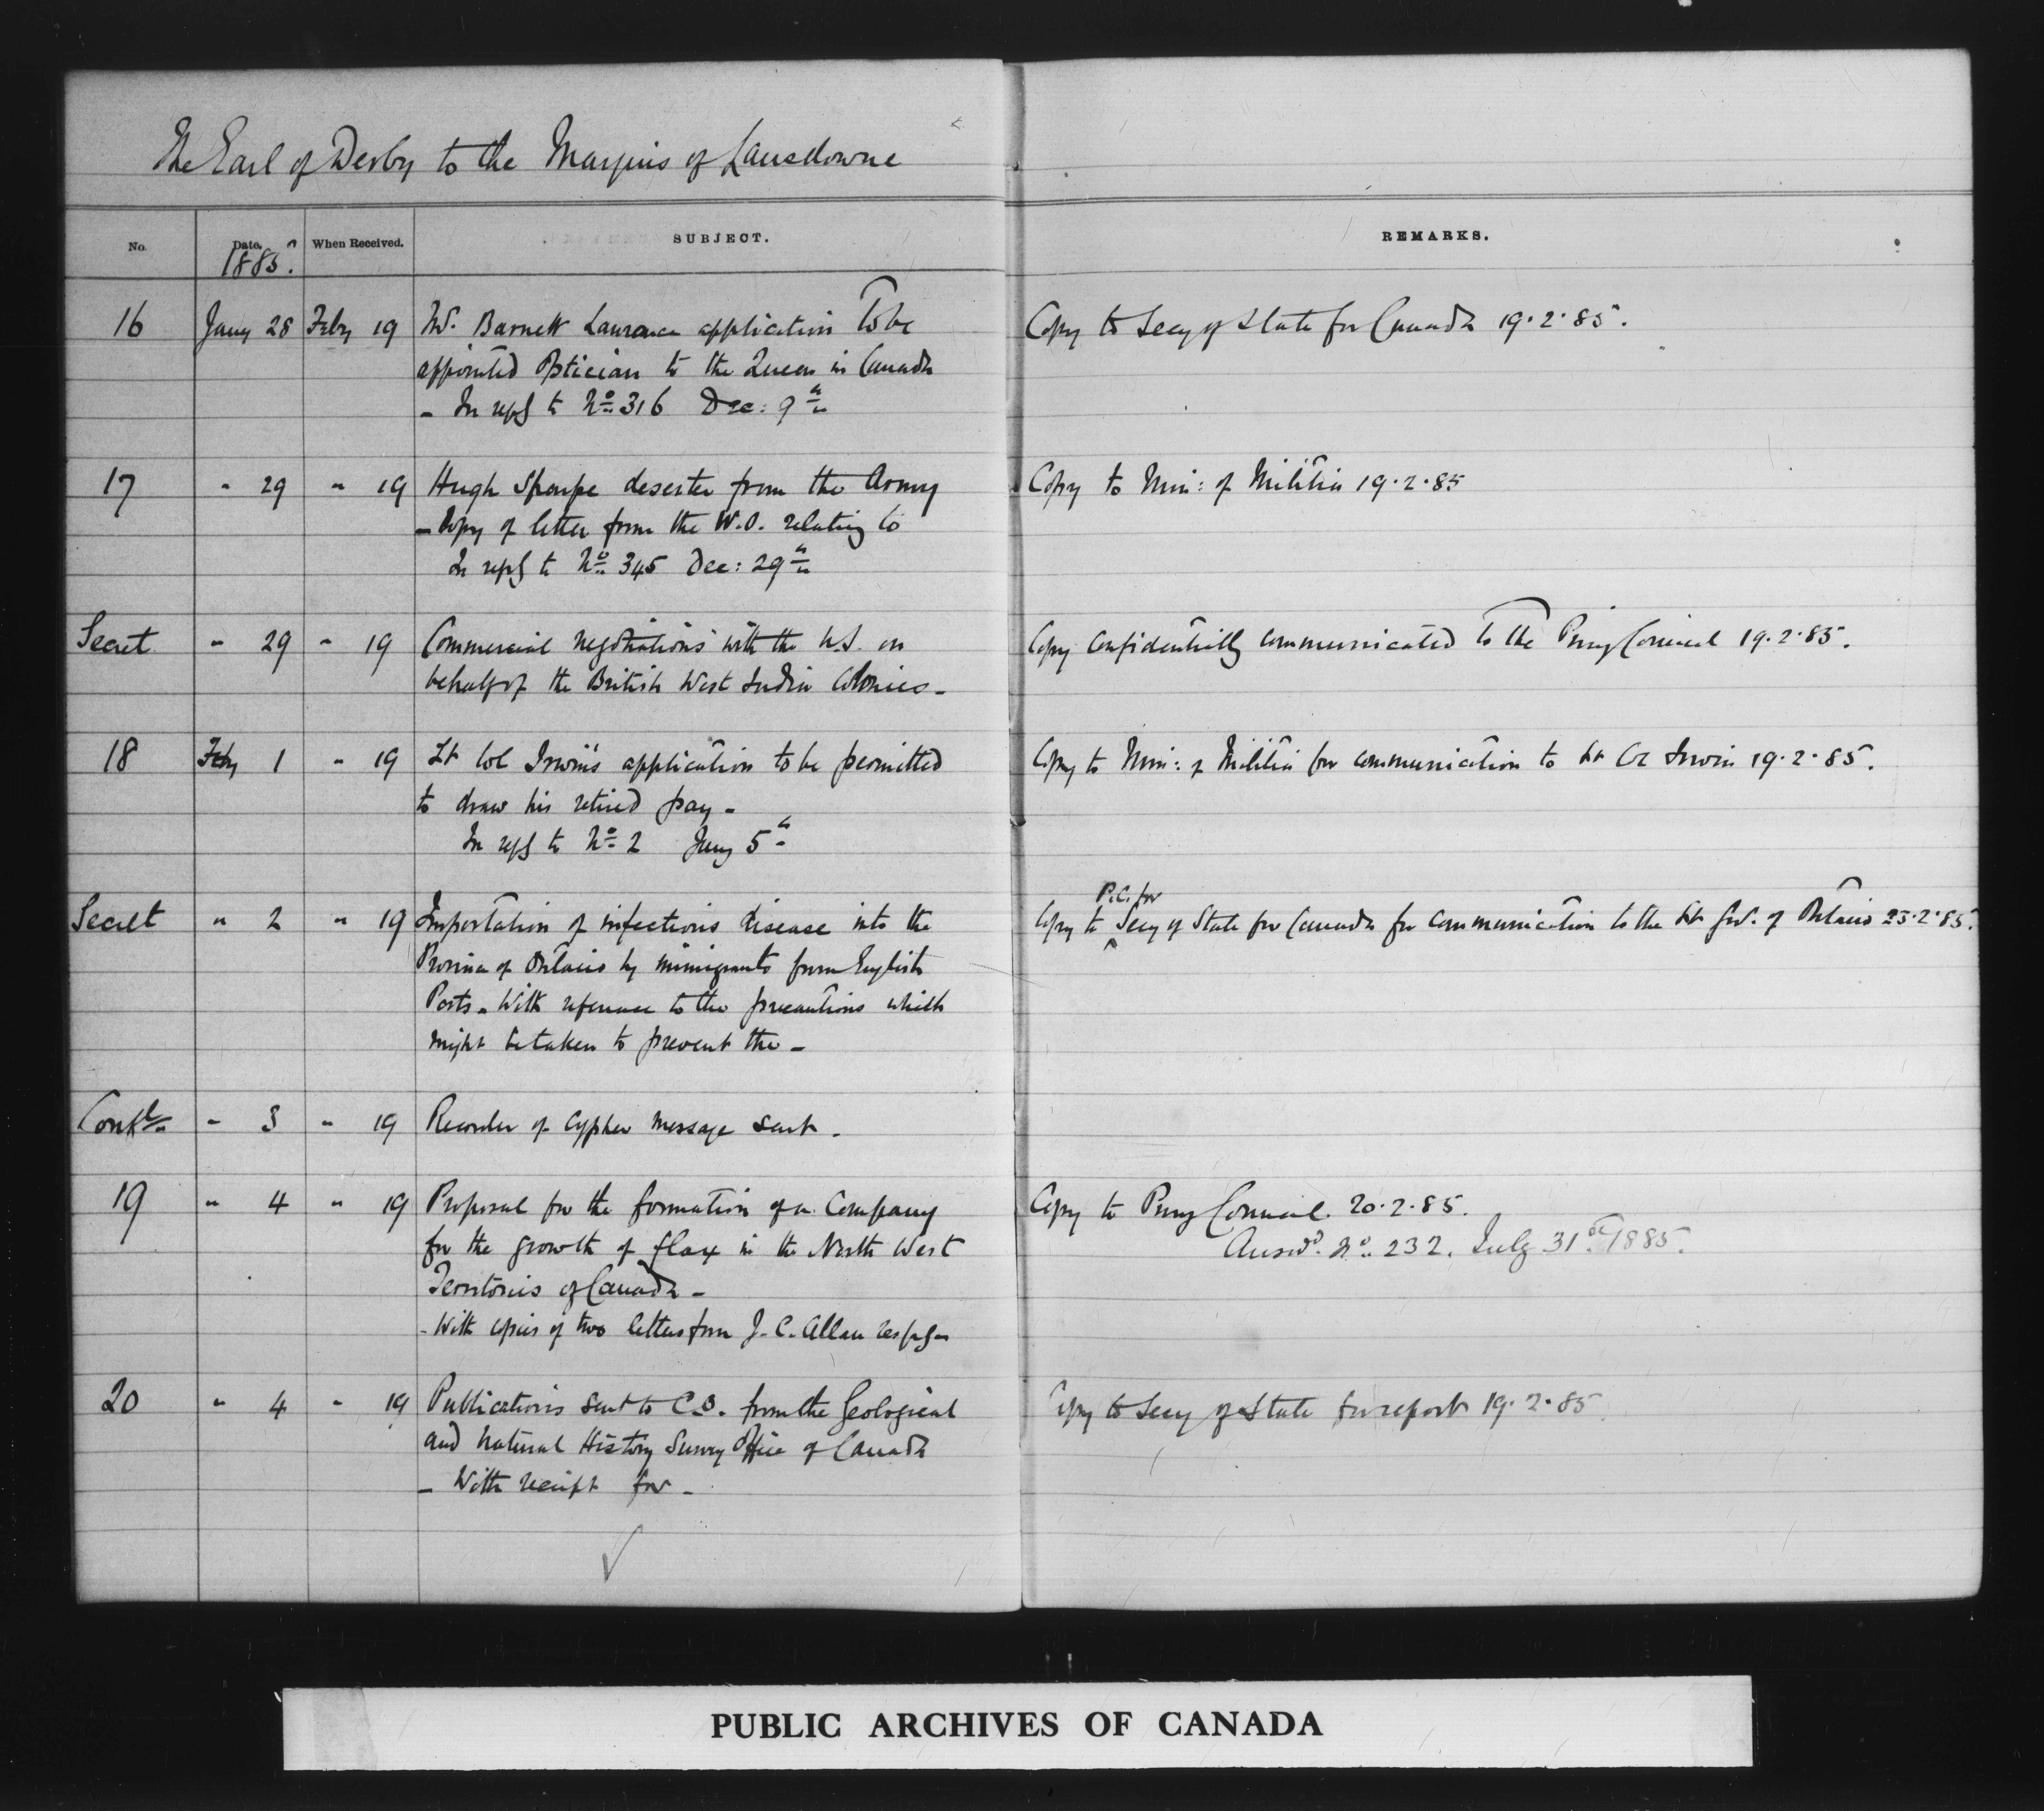 The Earl of Derby to the Marquis of Lansdowne
No. Date. When Received. SUBJECT. REMARKS.
1885.
16 Jany 28 Feby 19 Mr. Barnett Laurance application to be Copy to Secy of State for Canada 19.2.85.
appointed Optician to the Queen in Canada
- In reply to No 316 Dec: 9th
17 " 29 " 19 Hugh Sharpe deserter from the Army Copy to Min: of Militia 19.2.85
- Copy of letter from the W.O. relating to
In reply to No 345 Dec: 29th
Secret " 29 " 19 Commercial negotiations with the U.S. on Copy confidentially communicated to the Privy Council 19.2.85.
behalf of the British West India Colonies -
18 Feby 1 " 19 Lt Col Irwin's application to be permitted Copy to Min: of Militia for communication to Lt Col Irwin 19.2.85.
to draw his retired pay -
In reply to No 2 Jany 5th
P.C. for
Secret " 2 " 19 Importation of infectious disease into the Copy to ^ Secy of State for Canada for communication to the Lt Gov. of Ontario 23.2.85.
Province of Ontario by immigrants from English
Ports - With reference to the precautions which
might be taken to prevent the -
Confl " 3 " 19 Recorder of cypher message sent.
19 " 4 " 19 Proposal for the formation of a Company Copy to Privy Council. 20.2.85.
for the growth of flax in the North West Answd. No. 232. July 31st 1885.
Territories of Canada -
- With copies of two letters from J. C. Allan respg -
20 " 4 " 19 Publications sent to C.O. from the Geological Copy to Secy of State for report 19.2.85.
and Natural History Survey Office of Canada
- With receipt for -
PUBLIC ARCHIVES OF CANADA